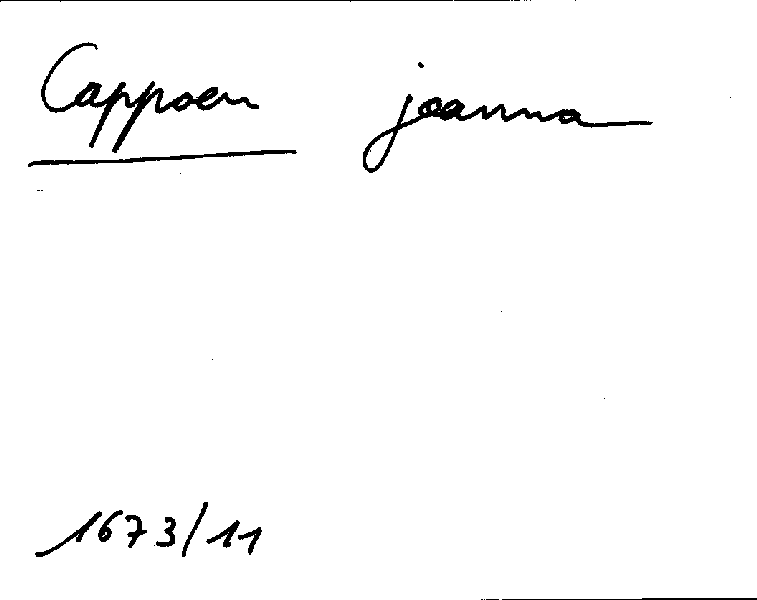 Cappoen joanna
1673/11